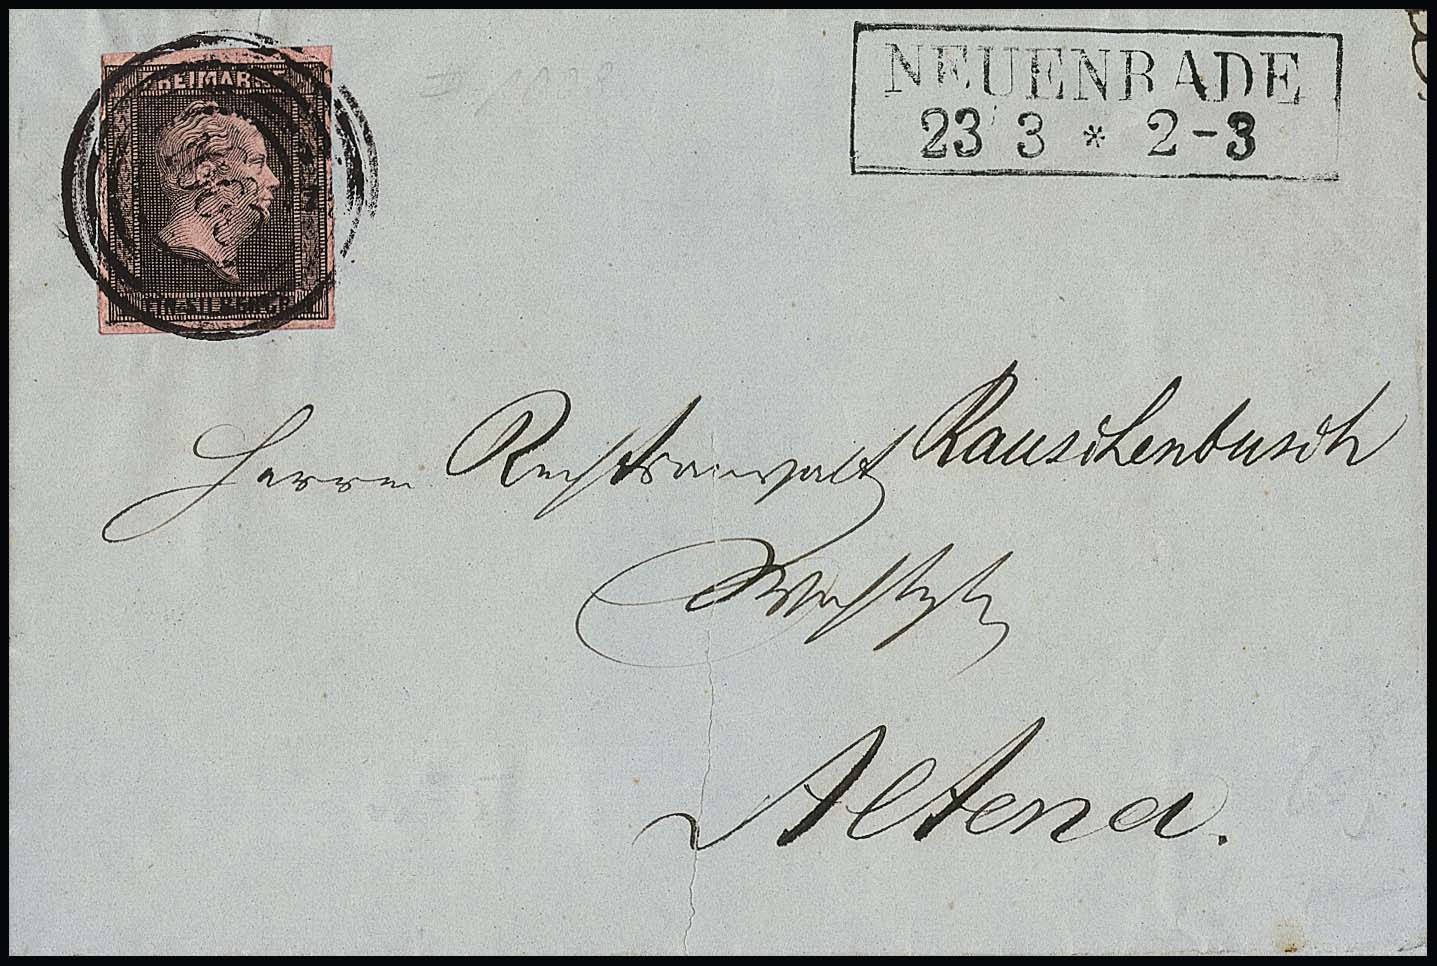 FREIMARKE
EIN SILBERGR
NEUENRADE
23 3 * 2-3
Herrn Rechtsanwalt Rauschenbusch
Altena.